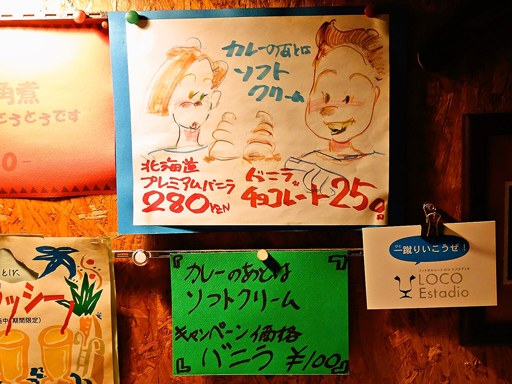 角煮
こうとうです
0-
カレーのあとは
ソフト
クリーム
北海道
プレミアムバニラ
280YEN
バニラ
チョコレート250円
カレーのあとは
ソフトクリーム
キャンペーン価格
バニラ ¥100
一蹴りいこうぜ!
LOCO
Estadio
ッシー
(期間限定)